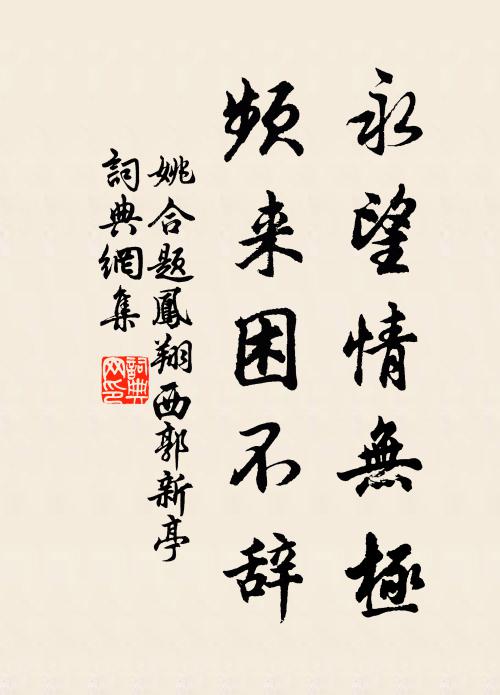 永望情無極
頻来困不辞
姚合題鳳翔西郭新亭
詞典網集
詞典网印